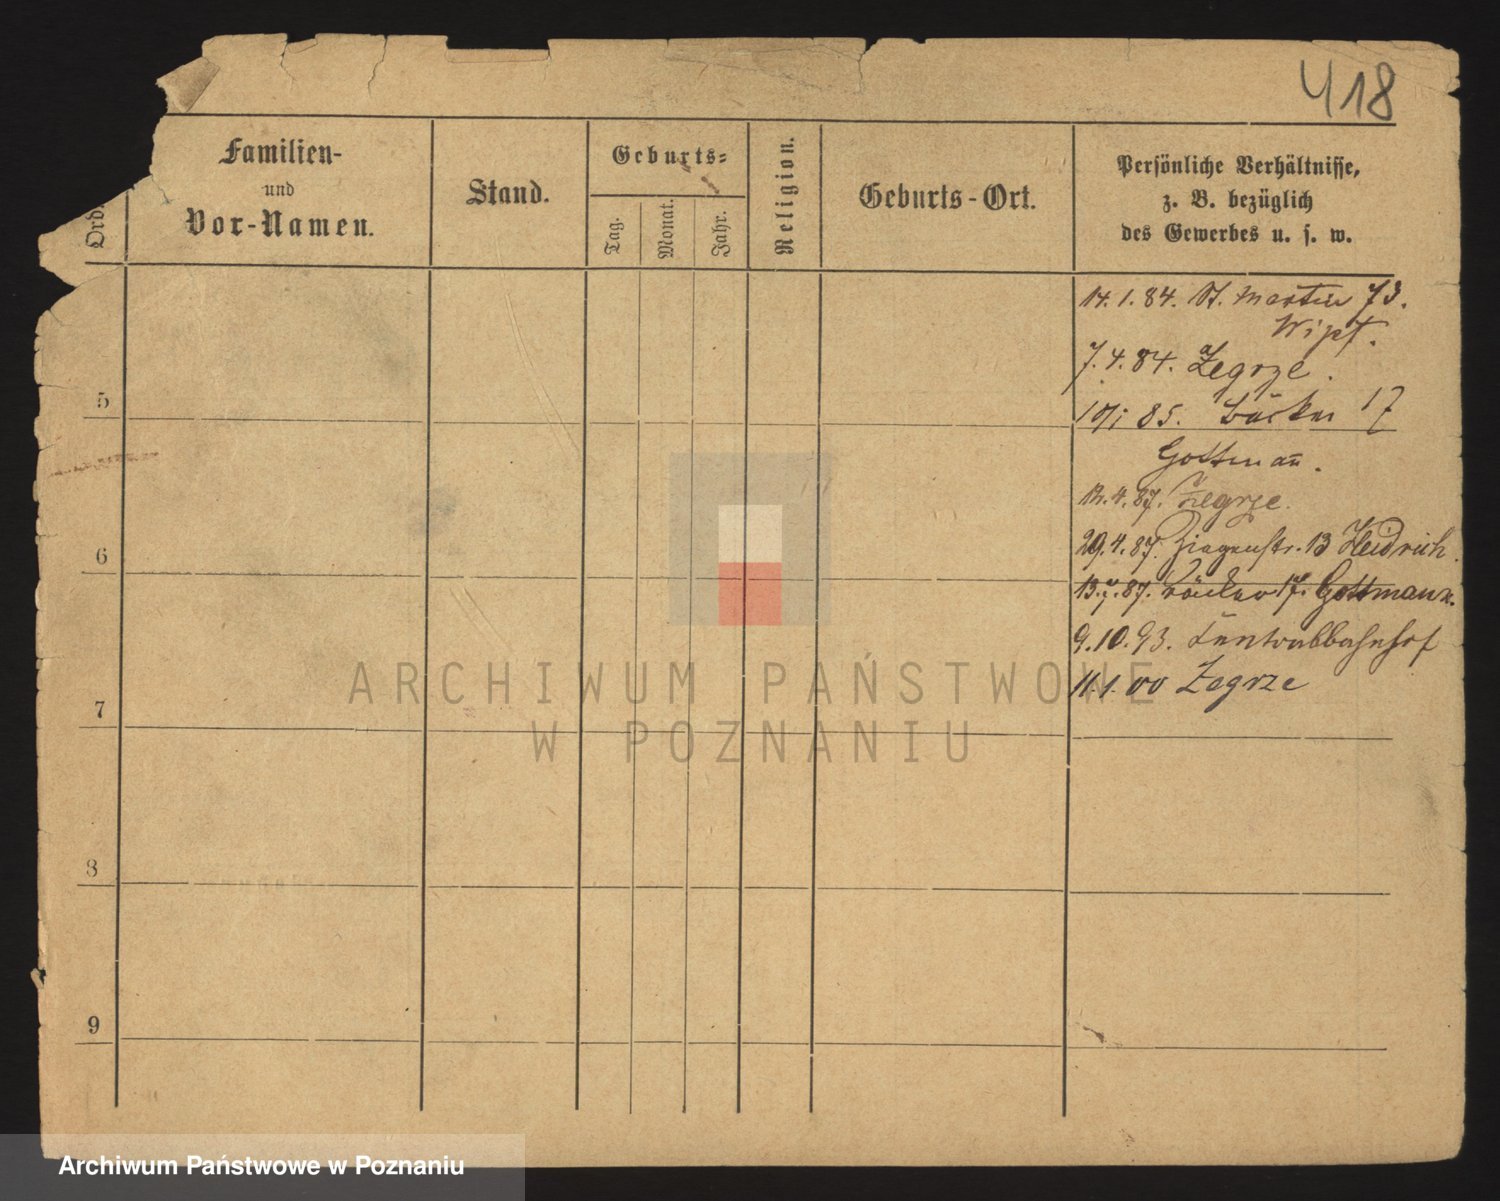 418
Ord.
Familien-
und
Vor-Namen.
Stand.
Geburts-
Tag.
Monat.
Jahr.
Religion.
Geburts-Ort.
Persönliche Verhältnisse,
z. B. bezüglich
des Gewerbes u. s. w.
14.1.84. St. Martin 73.
7.4.84. Zegrze.
5
85. Bäcker 17
Gottmann.
12.4.87. Zegrze.
6
29.4.87. Ziegenstr. 13 Heidrich.
13.7.87. Bäcker 17. Gottmann.
9.10.93. Centralbahnhof
7
11.1.00 Zegrze
8
9
ARCHIWUM PAŃSTWOWE
W POZNANIU
Archiwum Państwowe w Poznaniu